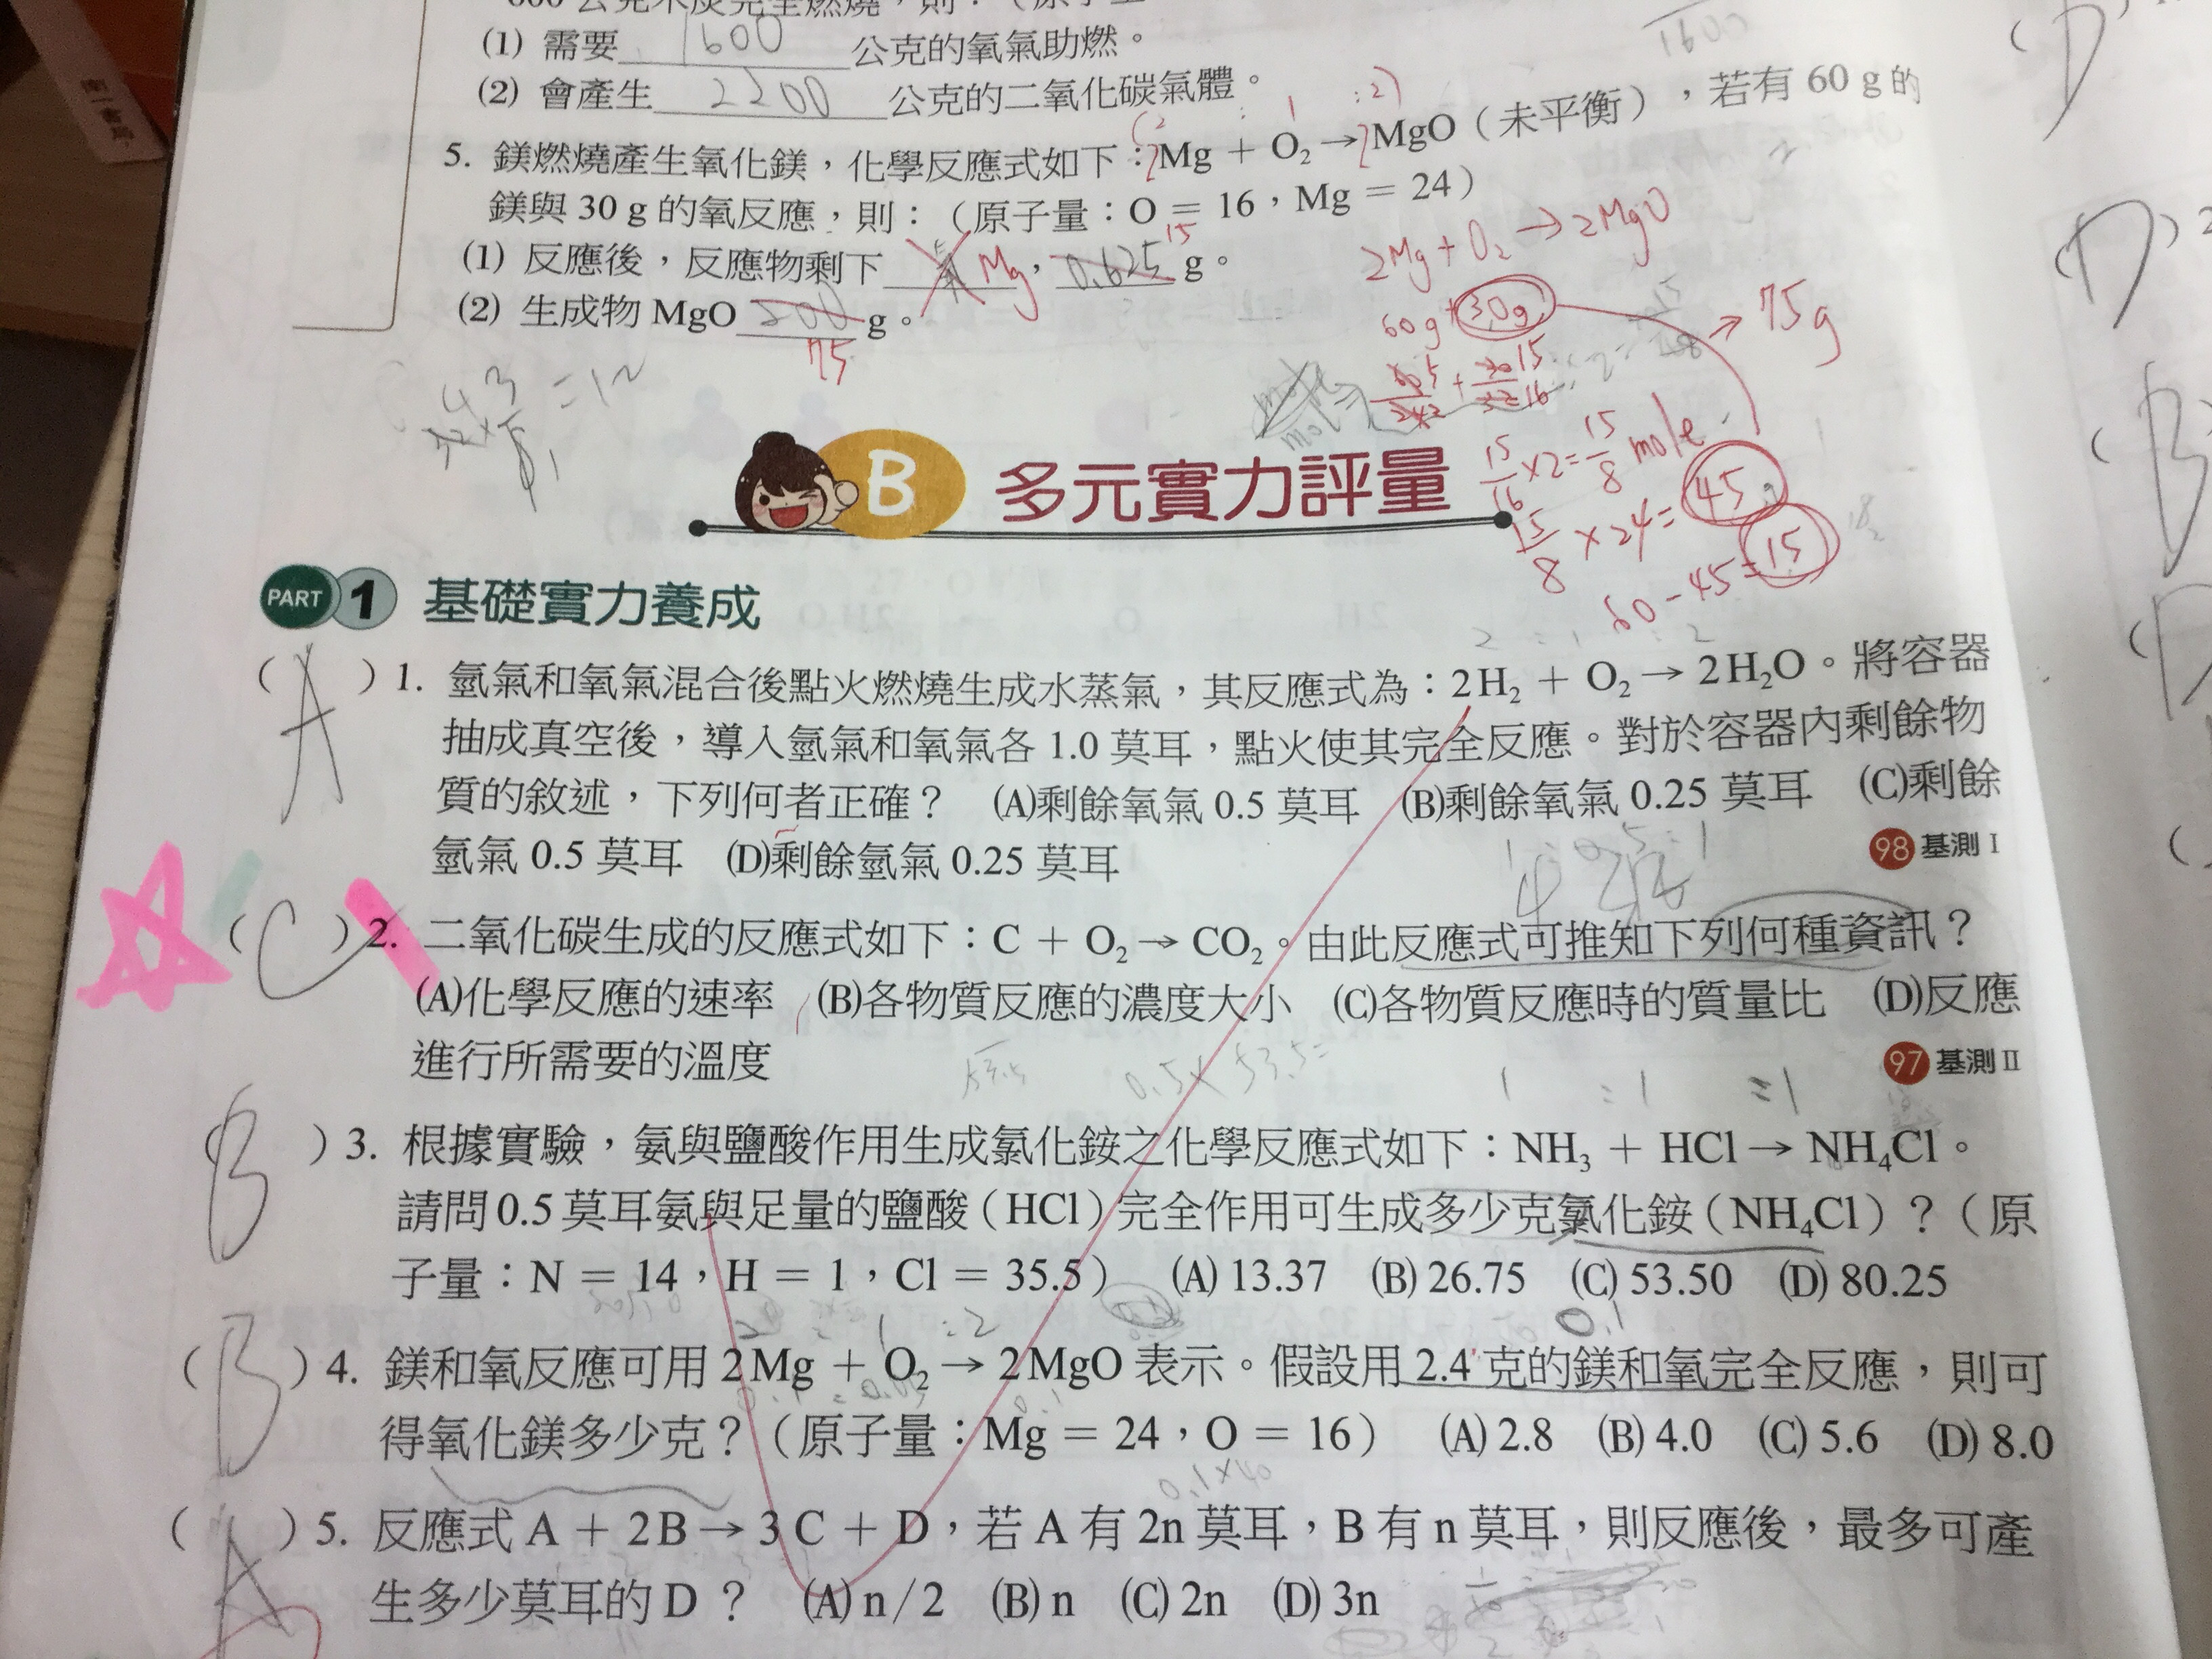 (1) 需要 1600 公克的氧氣助燃。
(2) 會產生 2200 公克的二氧化碳氣體。
5. 鎂燃燒產生氧化鎂，化學反應式如下：2Mg + O₂ → 2MgO（未平衡），若有 60 g 的
鎂與 30 g 的氧反應，則：（原子量：O = 16，Mg = 24）
(1) 反應後，反應物剩下 氧 Mg，0.625 15 g。
(2) 生成物 MgO 200 g。
75
2Mg + O₂ → 2MgO
60g + 30g → 75g
15/16 × 2 = 15/8 mole
15/8 × 24 = 45
60 - 45 = 15
B 多元實力評量
PART 1 基礎實力養成
( A ) 1. 氫氣和氧氣混合後點火燃燒生成水蒸氣，其反應式為：2H₂ + O₂ → 2H₂O。將容器
抽成真空後，導入氫氣和氧氣各 1.0 莫耳，點火使其完全反應。對於容器內剩餘物
質的敘述，下列何者正確？ (A)剩餘氧氣 0.5 莫耳 (B)剩餘氧氣 0.25 莫耳 (C)剩餘
氫氣 0.5 莫耳 (D)剩餘氫氣 0.25 莫耳 98 基測 I
( C ) 2. 二氧化碳生成的反應式如下：C + O₂ → CO₂。由此反應式可推知下列何種資訊？
(A)化學反應的速率 (B)各物質反應的濃度大小 (C)各物質反應時的質量比 (D)反應
進行所需要的溫度 97 基測 II
0.5 × 53.5 =
1 : 1 = 1
( B ) 3. 根據實驗，氨與鹽酸作用生成氯化銨之化學反應式如下：NH₃ + HCl → NH₄Cl。
請問 0.5 莫耳氨與足量的鹽酸（HCl）完全作用可生成多少克氯化銨（NH₄Cl）？（原
子量：N = 14，H = 1，Cl = 35.5） (A) 13.37 (B) 26.75 (C) 53.50 (D) 80.25
2 : 1 : 2 0.1
( B ) 4. 鎂和氧反應可用 2Mg + O₂ → 2MgO 表示。假設用 2.4 克的鎂和氧完全反應，則可
得氧化鎂多少克？（原子量：Mg = 24，O = 16） (A) 2.8 (B) 4.0 (C) 5.6 (D) 8.0
0.1 × 40
( A ) 5. 反應式 A + 2B → 3C + D，若 A 有 2n 莫耳，B 有 n 莫耳，則反應後，最多可產
生多少莫耳的 D？ (A) n/2 (B) n (C) 2n (D) 3n